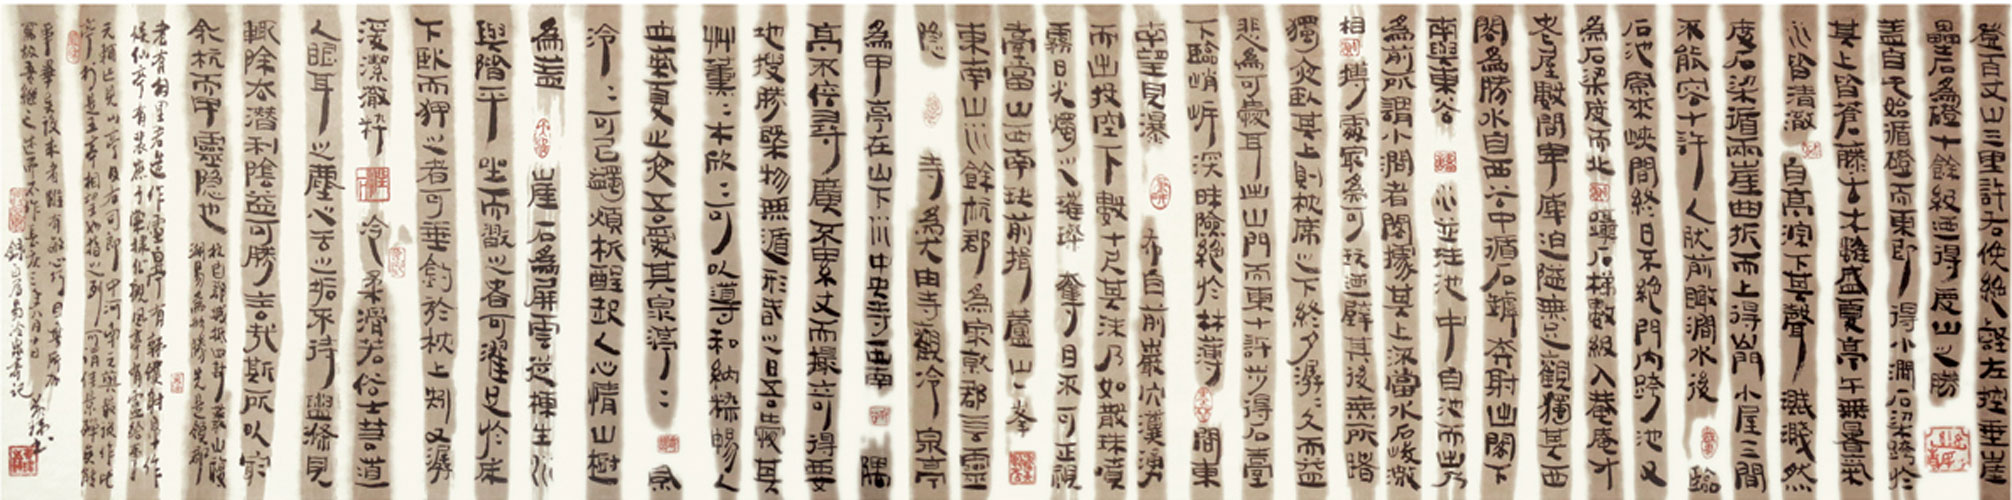 登百丈山三里許右俯絕壑左控垂崖
疊石為磴十餘級迺得度山之勝
蓋自此始循磴而東即得小澗石梁跨於
其上皆蒼藤古木雖盛夏亭午無暑氣
水皆清澈自高淙下其聲濺濺然
度石梁循兩崖曲折而上得山門小屋三間
不能容十許人然前瞰澗水後臨
石池風來峽間終日不絕門內跨池又
為石梁度而北躡石梯數級入菴菴才
老屋數間卑庳迫隘無足觀獨其西
閣為勝水自西谷中循石罅奔射出閣下
南與東谷水並注池中自池而出乃
為前所謂小澗者閣據其上流當水石峻激
相搏處最為可玩迺壁其後無所睹
獨夜臥其上則枕席之下終夕潺潺久而益
悲為可愛耳出山門而東十許步得石臺
下臨峭岸深昧險絕於林薄間東
南望見瀑布自前巖穴瀵湧
而出投空下數十尺其沫乃如散珠噴
霧日光燭之璀璨奪目不可正視
臺當山西南缺前揖蘆山一峯
東南山水餘杭郡為最就郡言靈
隱寺為尤由寺觀冷泉亭
為甲亭在山下水中央寺西南隅
高不倍尋廣不累丈而撮奇得要
地搜勝概物無遁形春之日吾愛其
草薰薰木欣欣可以導和納粹暢人
血氣夏之夜吾愛其泉渟渟風
泠泠可以蠲煩析酲起人心情山樹
為蓋崖石為屏雲從棟生水
與階平坐而翫之者可濯足於床
下臥而狎之者可垂釣於枕上矧又潺
湲潔澈粹冷柔滑若俗士若道
人眼耳之塵心舌之垢不待盥滌見
輒除去潛利陰益可勝言哉斯所以最
余杭而甲靈隱也
杭自郡城抵四封叢山複
湖易為形勝先是領郡
者有相里君造作虛白亭有韓僕射皋作
候仙亭有裴庶子棠棣作觀風亭有盧給事
元輔作見山亭及右司郎中河南元藇最後作此
亭於是五亭相望如指之列可謂佳景殫矣能
事畢矣後來者雖有敏心巧目無所加
焉故吾繼之述而不作長慶三年八月十三日
錄白居易冷泉亭記